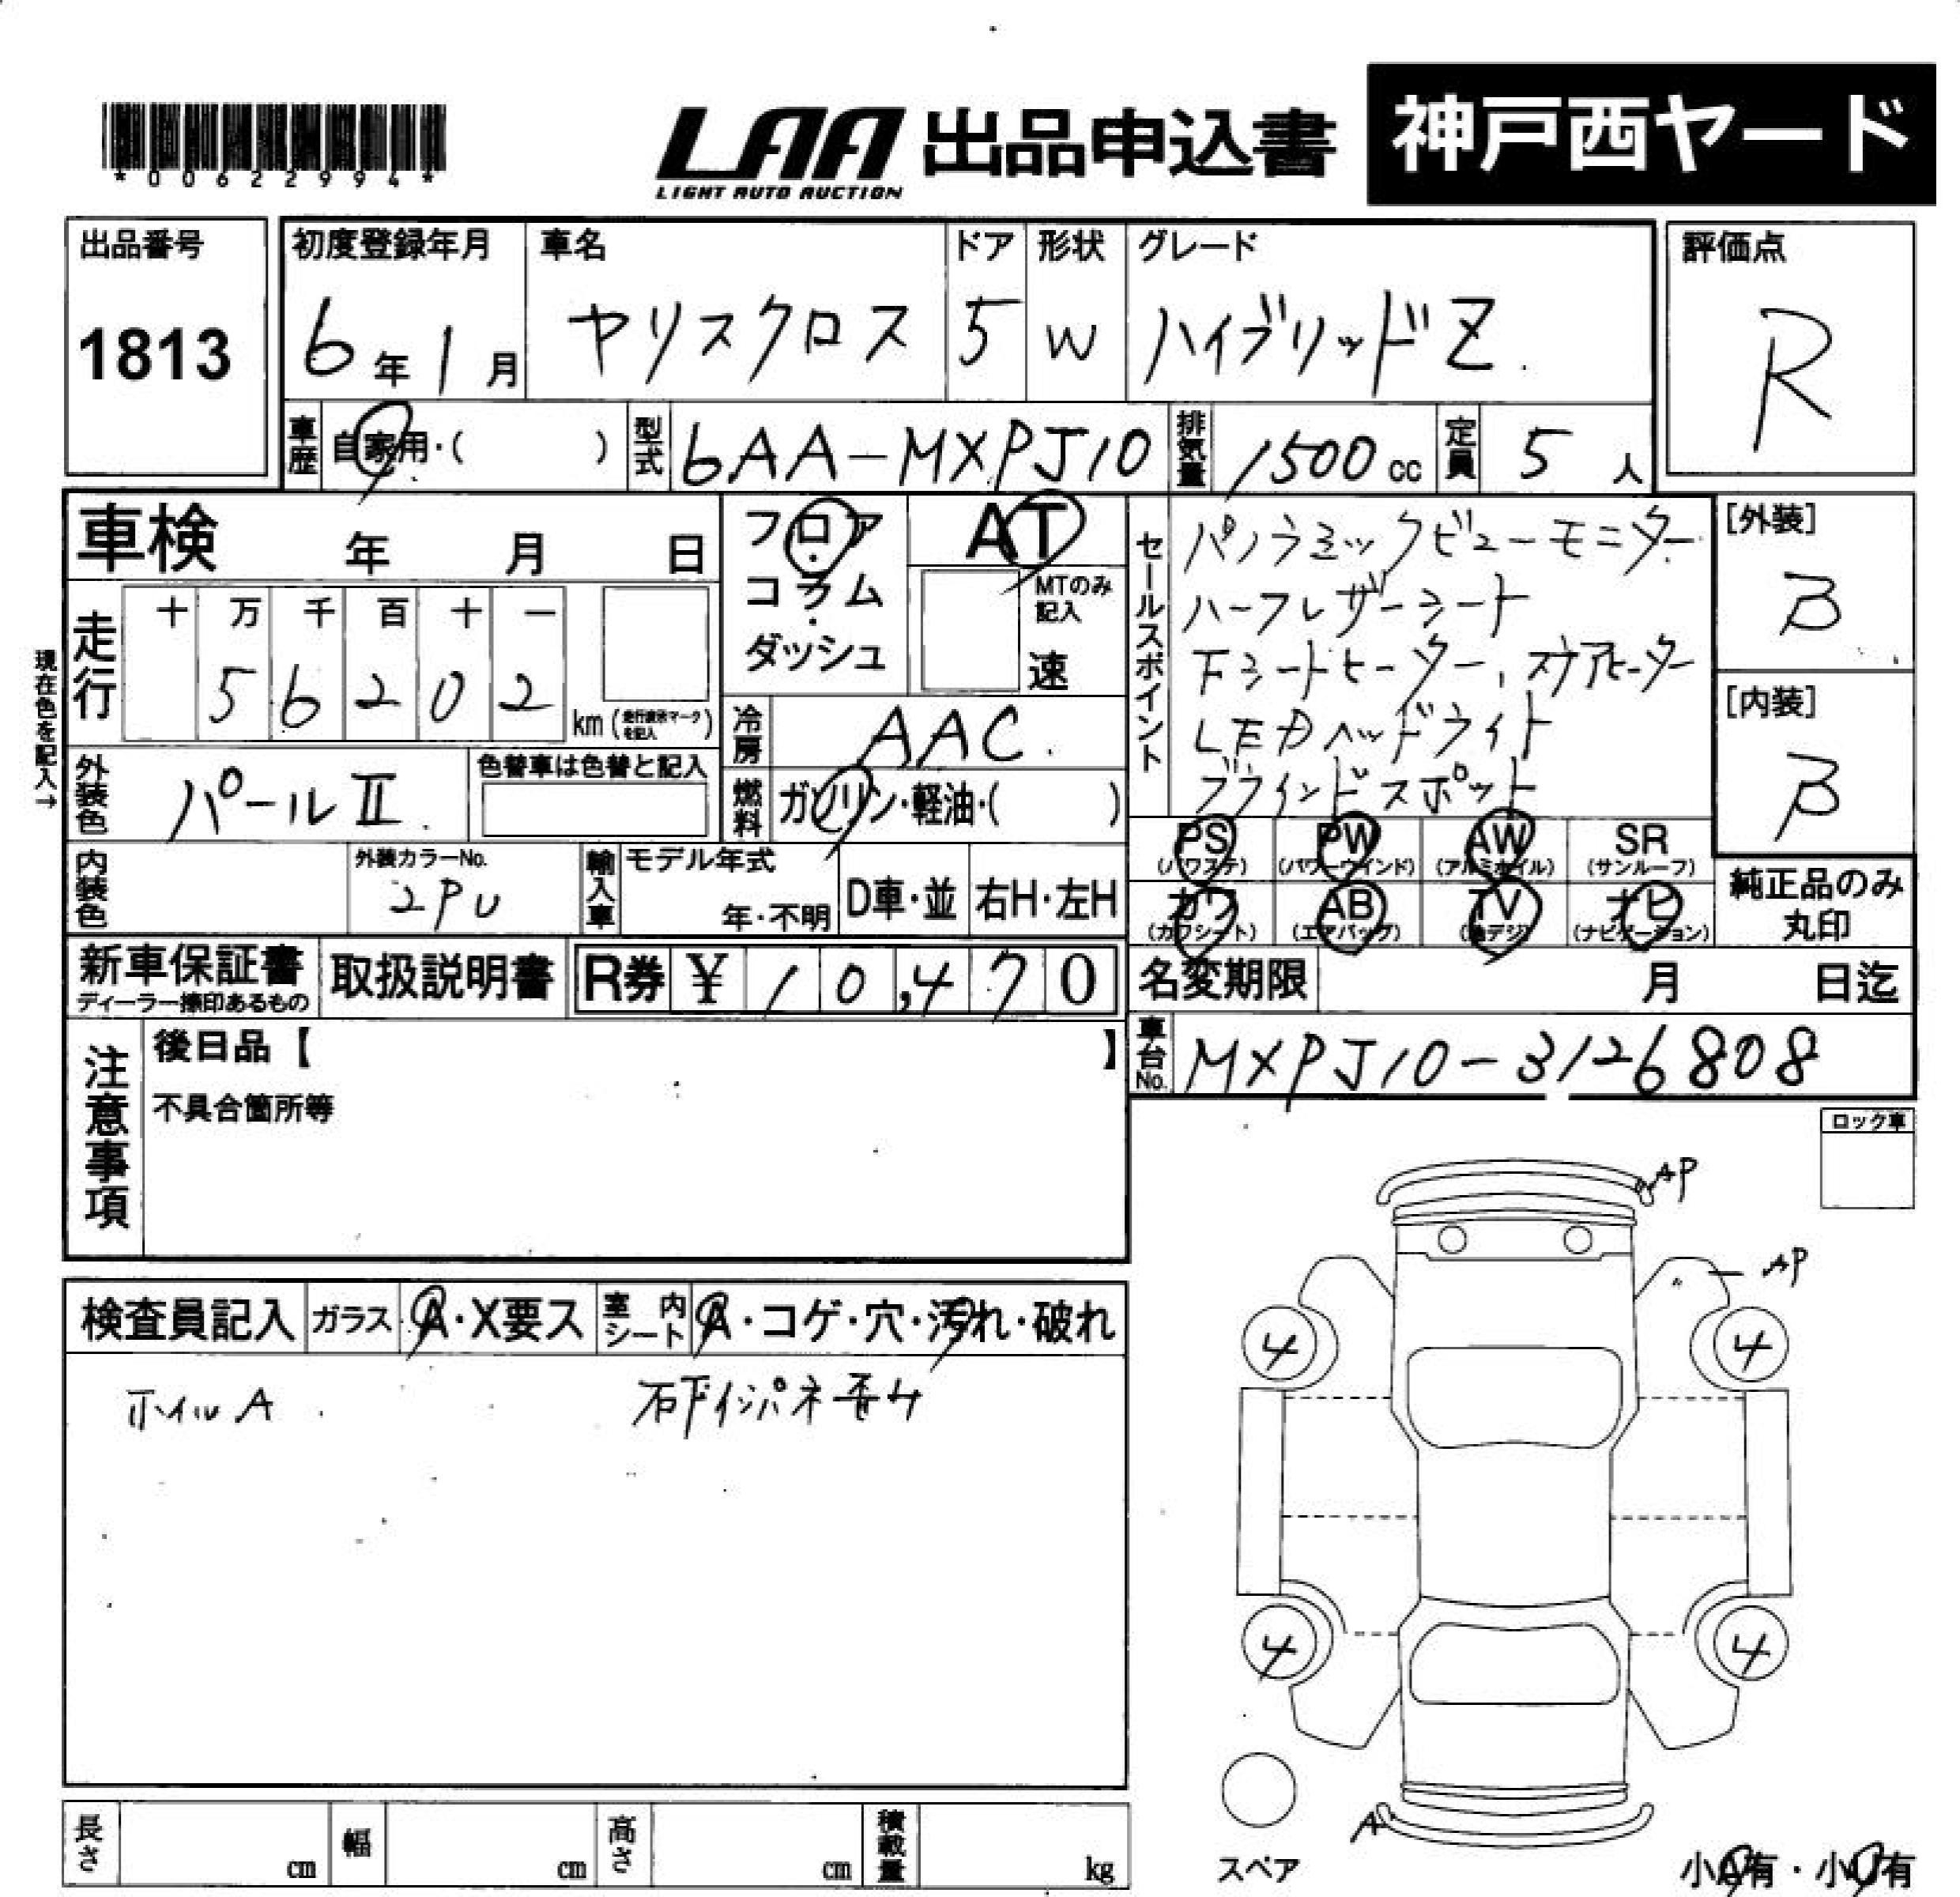 *00622994*
LAA 出品申込書 神戸西ヤード
LIGHT AUTO AUCTION
出品番号 1813
初度登録年月 6年1月
車名 ヤリスクロス
ドア 5
形状 W
グレード ハイブリッドZ.
評価点 R
車歴 自家用・( )
型式 6AA-MXPJ10
排気量 1500cc
定員 5人
車検 年 月 日
フロア・コラム・ダッシュ
AT
MTのみ記入
速
セールスポイント
パノラミックビューモニター
ハーフレザーシート
下シートヒーター、ステアヒーター
LEDヘッドライト
ブラインドスポット
[外装] B
[内装] B
現在色を記入→
走行 十 万 千 百 十 一
5 6 2 0 2
km (走行表示マークを記入)
冷房 AAC.
外装色 パールⅡ.
色替車は色替と記入
燃料 ガソリン・軽油・( )
PS (パワステ) PW (パワーウインド) AW (アルミホイル) SR (サンルーフ)
カワ (カワシート) AB (エアバッグ) TV (地デジ) ナビ (ナビゲーション)
純正品のみ丸印
内装色
外装カラーNo. 2PU
輸入車 モデル年式 年・不明 D車・並 右H・左H
新車保証書 ディーラー捺印あるもの
取扱説明書
R券 ¥10,470
名変期限 月 日迄
車台No. MXPJ10-3126808
注意事項
後日品【 】
不具合箇所等
ロック車
検査員記入 ガラス A・X要ス 室内シート A・コゲ・穴・汚れ・破れ
ホイルA
AP
AP
4 4
4 4
A
スペア
小A有・小U有
長さ cm 幅 cm 高さ cm 積載量 kg